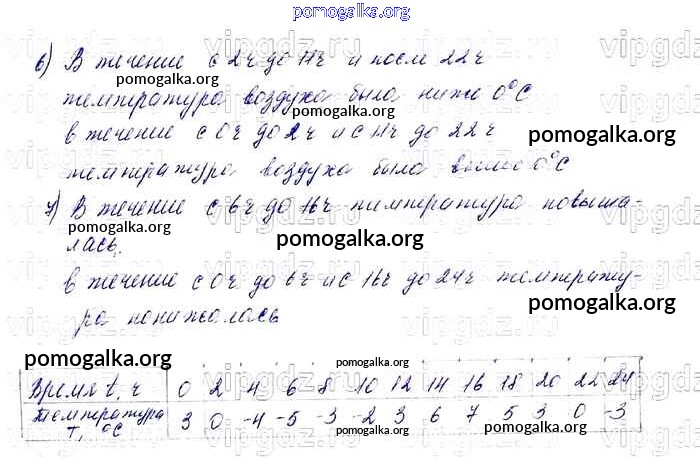 pomogalka.org
6) В течение с 2ч до 11ч и после 22ч
pomogalka.org
температура воздуха была ниже 0°С
pomogalka.org
в течение с 0ч до 2ч и с 11ч до 22ч
pomogalka.org
температура воздуха была выше 0°С
7) В течение с 6ч до 16ч температура повыша-
лась.
pomogalka.org
в течение с 0ч до 6ч и с 16ч до 24ч температу-
pomogalka.org
ра понижалась
pomogalka.org
pomogalka.org
Время t, ч 0 2 4 6 8 10 12 14 16 18 20 22 24
Температура T, °С 3 0 -4 -5 -3 -2 3 6 7 5 3 0 -3
pomogalka.org
pomogalka.org